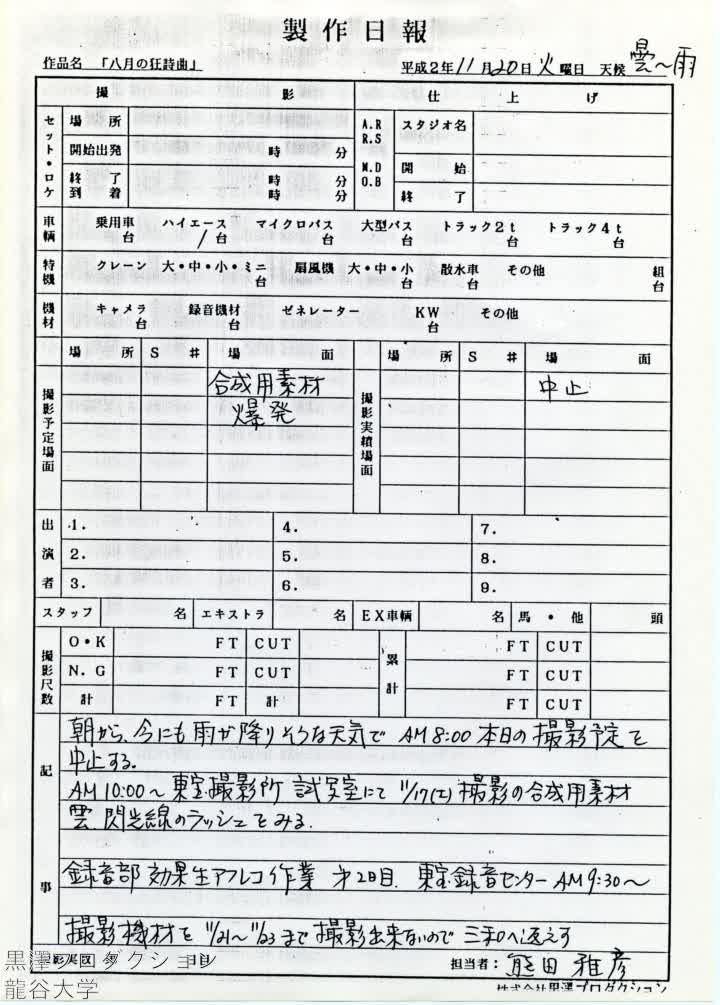 製作日報
作品名 「八月の狂詩曲」 平成2年11月20日火曜日 天候 曇〜雨
撮影 仕上げ
セット・ロケ 場所 A.R R.S スタジオ名
開始出発 時 分 M.D O.B 開始
終了 時 分 終了
到着 時 分
車輌 乗用車 台 ハイエース 1台 マイクロバス 台 大型バス 台 トラック2t 台 トラック4t 台
特機 クレーン 大・中・小・ミニ 台 扇風機 大・中・小 台 散水車 台 その他 組 台
機材 キャメラ 台 録音機材 台 ゼネレーター KW 台 その他
場所 S# 場面 場所 S# 場面
撮影予定場面 合成用素材 撮影実績場面 中止
爆発
出演者 1. 4. 7.
2. 5. 8.
3. 6. 9.
スタッフ 名 エキストラ 名 EX車輌 名 馬・他 頭
撮影尺数 O・K FT CUT 累計 FT CUT
N.G FT CUT FT CUT
計 FT 計 FT CUT
記事
朝から、今にも雨が降りそうな天気で AM8:00 本日の撮影予定を
中止する.
AM10:00〜 東宝撮影所 試写室にて 11/17(土)撮影の合成用素材
雲 閃光線のラッシュをみる.
録音部 効果生アフレコ作業 才2日目. 東宝録音センター AM9:30〜
撮影機材を 11/21〜11/23まで撮影出来ないので 三和へ返えす
担当者: 熊田雅彦
株式会社黒澤プロダクション
黒澤プロダクション
龍谷大学